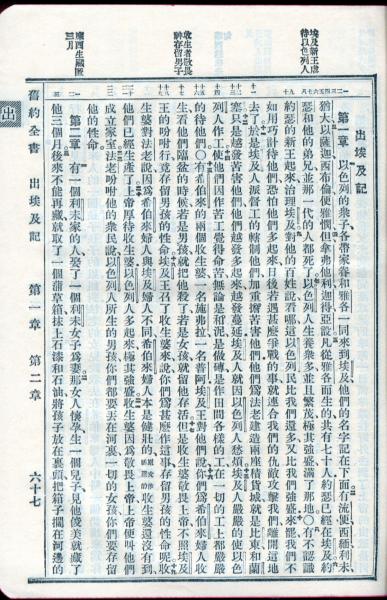 埃及新王虐
待以色列人
收生者敬畏
神存留男子
摩西生藏匿
三月
出埃及記
第一章 以色列的衆子各帶家眷和雅各一同來到埃及他們的名字記在下面有流便西緬利未
猶大以薩迦西布倫便雅憫但拿弗他利迦得亞設凡從雅各而生的共有七十人約瑟已經在埃及約
瑟和他的弟兄並那一代的人都死了以色列人生養衆多並且繁茂極其強盛滿了那地○有不認識
約瑟的新王起來治理埃及對他的百姓說看哪這以色列民比我們還多又比我們強盛來罷我們不
如用巧計待他們恐怕他們多起來日後若遇甚麼爭戰的事就連合我們的仇敵攻擊我們離開這地
去了於是埃及人派督工的轄制他們加重擔苦害他們他們爲法老建造兩座積貨城就是比東和蘭
塞只是越發苦害他們他們越發多起來越發蔓延埃及人就因以色列人愁煩埃及人嚴嚴的使以色
列人作工使他們因作苦工覺得命苦無論是和泥是做磚是作田間各樣的工在一切的工上都嚴嚴
的待他們○有希伯來的兩個收生婆一名施弗拉一名普阿埃及王對他們說你們爲希伯來婦人收
生看他們臨盆的時候若是男孩就把他殺了若是女孩就留他存活但是收生婆敬畏上帝不照埃及
王的吩咐行竟存留男孩的性命埃及王召了收生婆來說你們爲甚麼作這事存留男孩的性命呢收
生婆對法老說因爲希伯來婦人與埃及婦人不同希伯來婦人本是健壯的收生婆還沒有到
他們已經生產了上帝厚待收生婆以色列人多起來極其強盛收生婆因爲敬畏上帝上帝便叫他們
成立家室法老吩咐他的衆民說以色列人所生的男孩你們都要丟在河裏一切的女孩你們要存留
他的性命
第二章 有一個利未家的人娶了一個利未女子爲妻那女人懷孕生一個兒子見他俊美就藏了
他三個月後來不能再藏就取了一個蒲草箱抹上石漆和石油將孩子放在裏頭把箱子擱在河邊的
舊約全書 出埃及記 第一章 第二章 六十七
出